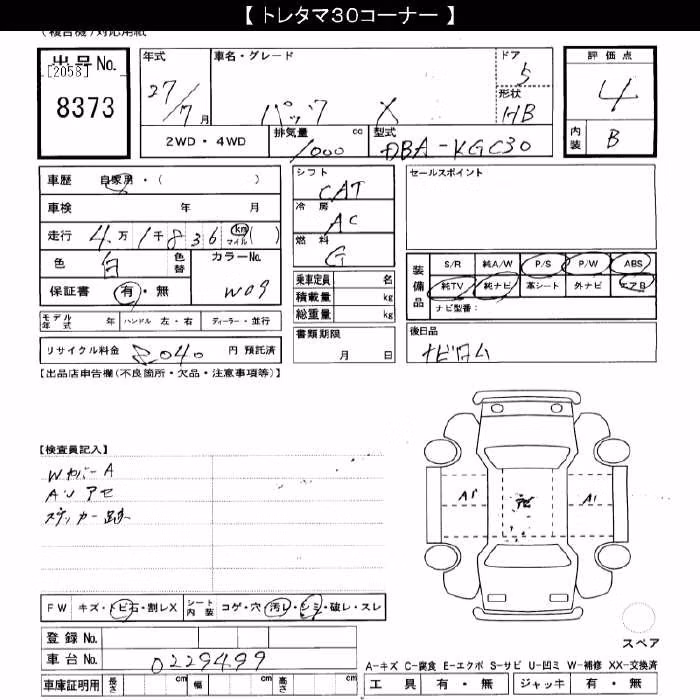 【 トレタマ30コーナー 】
(複合機)対応用紙
出品No.
[2058]
8373
年式
27/7月
車名・グレード
パッソ X
ドア
5
形状
HB
評価点
4
内装
B
2WD・4WD
排気量 1000 cc
型式 DBA-KGC30
車歴 自家用・( )
車検 年 月
走行 4万1千836 km マイル ( )
色 白 色替
カラーNo. W09
保証書 有・無
モデル年式 年 ハンドル 左・右 ディーラー・並行
リサイクル料金 8040 円 預託済
シフト CAT
冷房 AC
燃料 G
乗車定員 名
積載量 kg
総重量 kg
書類期限
月 日
セールスポイント
装備品
S/R 純A/W P/S P/W ABS
純TV 純ナビ 革シート 外ナビ エアB
ナビ型番:
後日品
ナビロム
【出品店申告欄(不良箇所・欠品・注意事項等)】
【検査員記入】
Wカバー A
ステッカー跡
A1
A1
FW キズ・トビ石・割レX
シート内装 コゲ・穴・汚レ・シミ・破レ・スレ
登録No.
車台No. 0229499
車庫証明用 長さ cm 幅 cm 高さ cm
スペア
A-キズ C-腐食 E-エクボ S-サビ U-凹ミ W-補修 XX-交換済
工具 有・無 ジャッキ 有・無